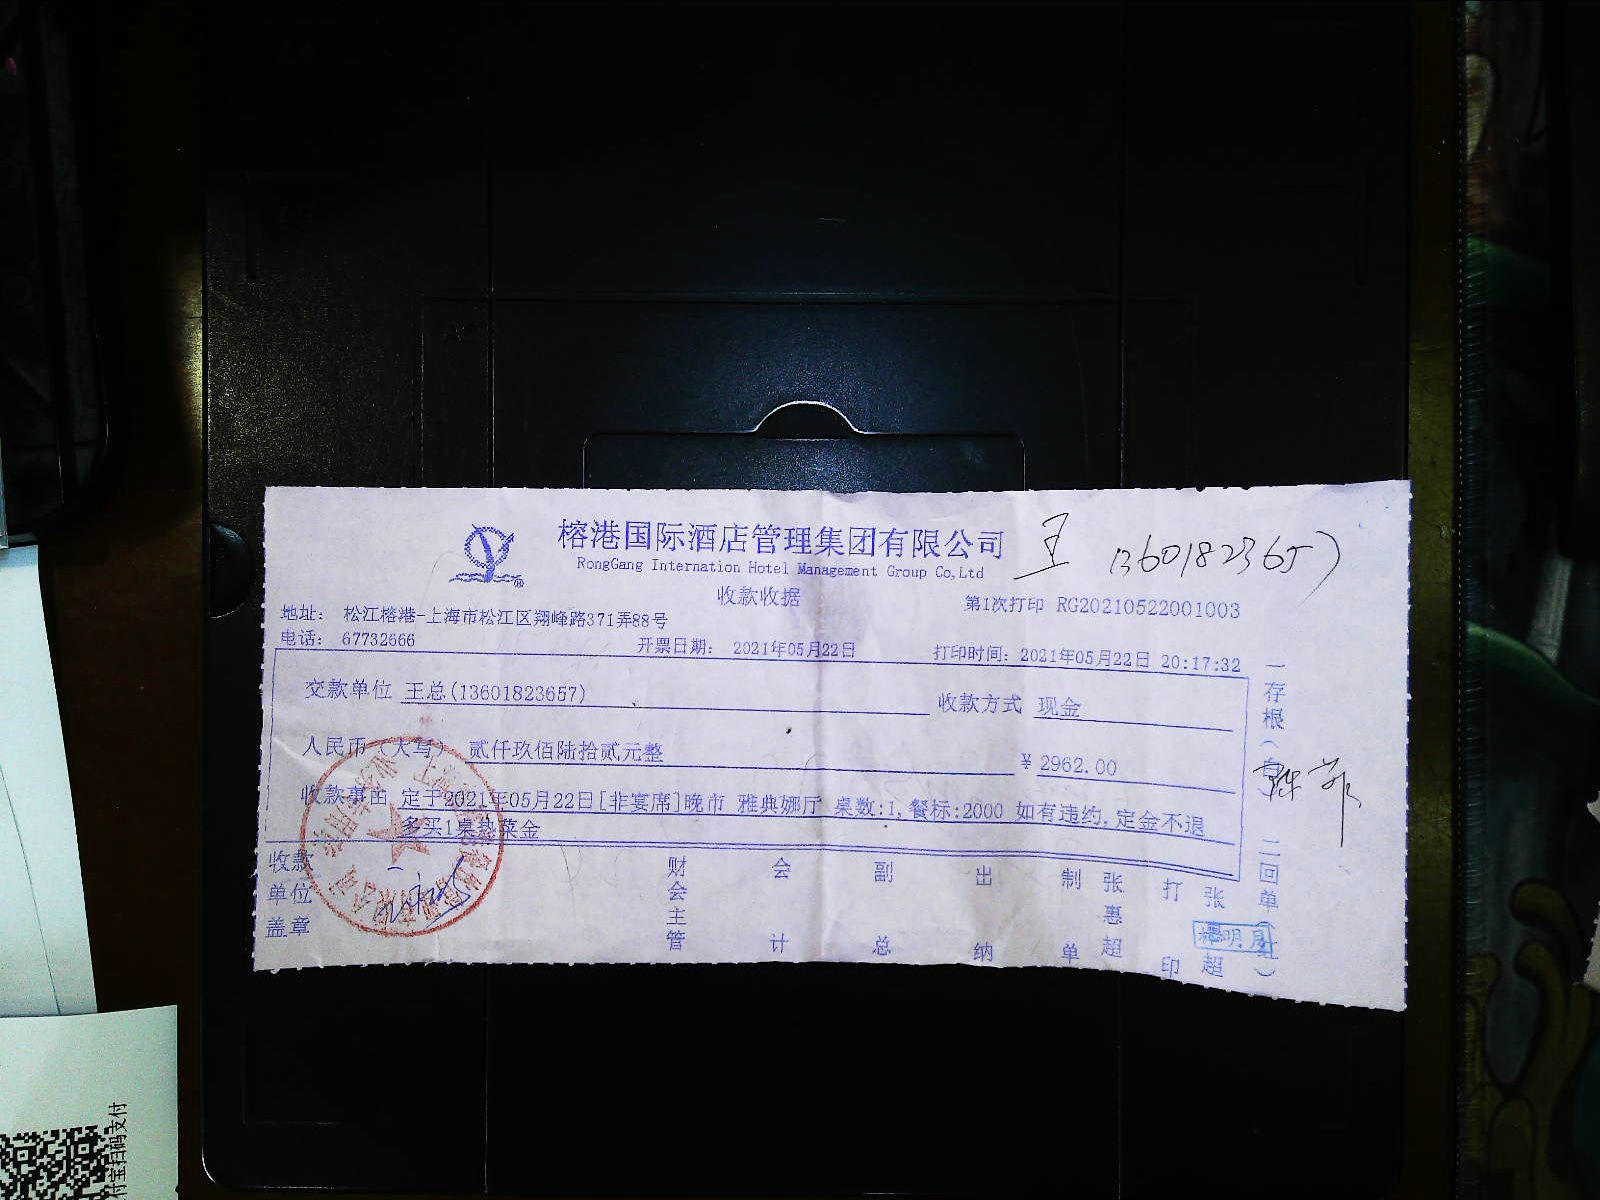 榕港国际酒店管理集团有限公司
RongGang Internation Hotel Management Group Co,Ltd
王 13601823657
收款收据
第1次打印 RG20210522001003
地址： 松江榕港-上海市松江区翔峰路371弄88号
电话： 67732666
开票日期： 2021年05月22日
打印时间：2021年05月22日 20:17:32
交款单位 王总(13601823657)
收款方式 现金
人民币（大写） 贰仟玖佰陆拾贰元整
￥2962.00
收款事由 定于2021年05月22日[非宴席]晚市 雅典娜厅 桌数:1,餐标:2000 如有违约,定金不退
多买1桌热菜金
收款单位盖章
财会主管
会计
副总
出纳
制单
张惠超
打印
张惠超
一存根（白）
二回单（红）
明月
付宝扫码支付